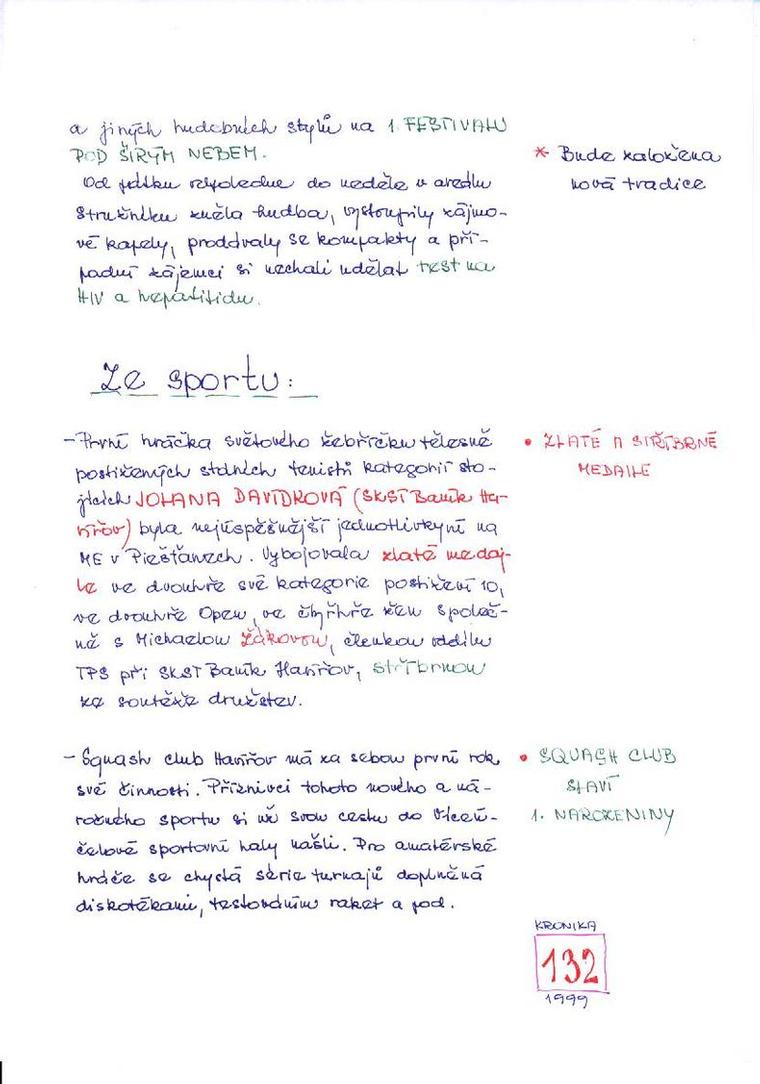 a jiných hudebních stylů na 1. FESTIVALU
POD ŠIRÝM NEBEM.
* Bude založena
nová tradice
Od pátku odpoledne do neděle v areálu
Stružníku zněla hudba, vystoupily zájmo-
vé kapely, prodávaly se kompakty a pří-
padní zájemci si nechali udělat test na
HIV a hepatitidu.
Ze sportu:
- První hráčka světového žebříčku tělesně
postižených stolních tenistů kategorií sto-
jících JOLANA DAVÍDKOVÁ (SKST Baník Ha-
vířov) byla nejúspěšnější jednotlivkyní na
ME v Piešťanech. Vybojovala zlaté medaj-
le ve dvouhře své kategorie postižení 10,
ve dvouhře Open, ve čtyřhře žen společ-
ně s Michaelou Žákovou, členkou oddílu
TPS při SKST Baník Havířov, stříbrnou
ze soutěže družstev.
• ZLATÉ A STŘÍBRNÉ
MEDAILE
- Squash club Havířov má za sebou první rok
své činnosti. Příznivci tohoto nového a ná-
ročného sportu si už svou cestu do Víceú-
čelové sportovní haly našli. Pro amatérské
hráče se chystá série turnajů doplněná
diskotékami, testováním raket a pod.
• SQUASH CLUB
SLAVÍ
1. NAROZENINY
KRONIKA
132
1999